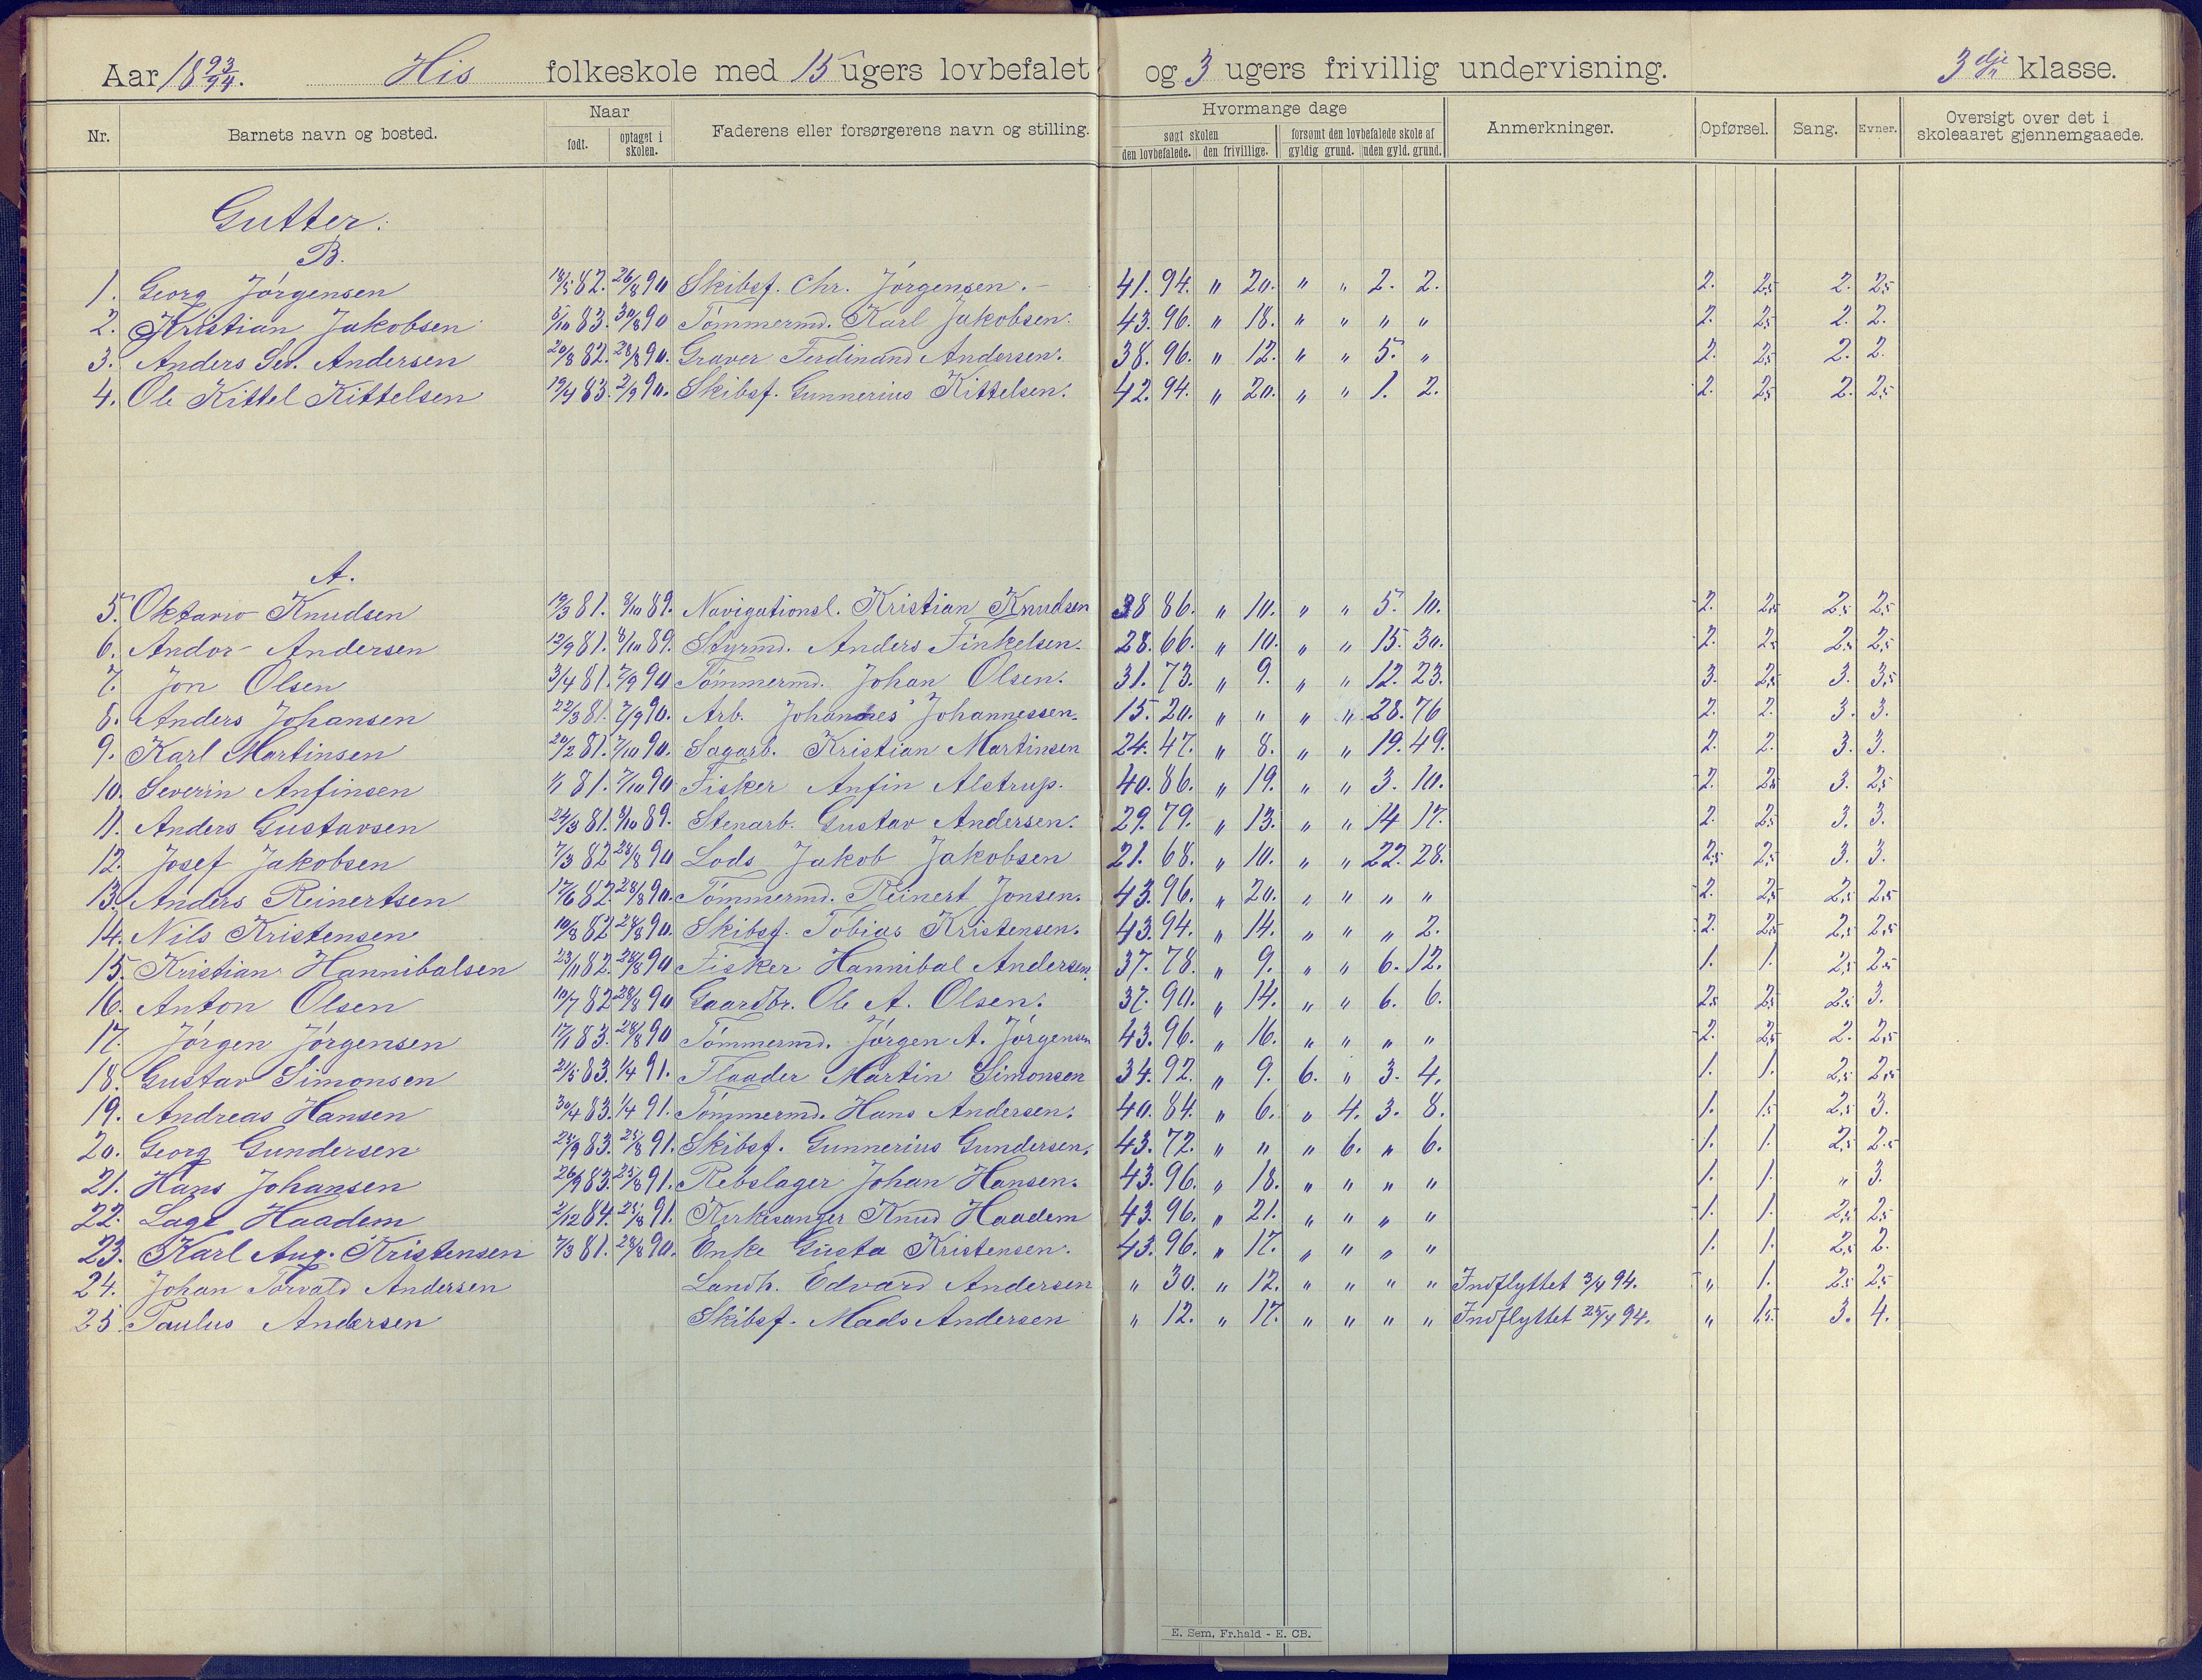 Aar 18 93/94. His folkeskole med 15 ugers lovbefalet og 3 ugers frivillig undervisning. 3 dje klasse.
Nr. Barnets navn og bosted. Naar født. optaget i skolen. Faderens eller forsørgerens navn og stilling. Hvormange dage søgt skolen den lovbefalede. den frivillige. forsømt den lovbefalede skole af gyldig grund. uden gyld. grund. Anmerkninger. Opførsel. Sang. Evner. Oversigt over det i skoleaaret gjennemgaaede.
Gutter:
B.
1. Georg Jørgensen 18/5 82. 26/8 90 Skibsf. Chr. Jørgensen. 41. 94. " 20. " " 2. 2. 2. 2,5 2. 2,5
2. Kristian Jakobsen 5/10 83. 30/8 90 Tømmermd. Karl Jakobsen. 43. 96. " 18. " " " " 2. 2,5 2. 2.
3. Anders Sev. Andersen 20/8 82. 28/8 90. Graver Ferdinand Andersen. 38. 96. " 12. " " 5. " 2. 2,5 2. 2.
4. Ole Kittel Kittelsen 19/4 83. 2/9 90. Skibsf. Gunnerius Kittelsen. 42. 94. " 20. " " 1. 2. 2. 2,5 2. 2,5
A.
5. Oktavio Knudsen 19/3 81. 8/10 89. Navigationsl. Kristian Knudsen 38 86. " 10. " " 5. 10. 2. 2,5 2,5 2,5
6. Andor Andersen 12/9 81. 8/10 89. Styrmd. Anders Finkelsen. 28. 66. " 10. " " 15. 30. 2. 2,5 2,5 2,5
7. Jon Olsen 3/4 81. 7/9 90 Tømmermd. Johan Olsen. 31. 73. " 9. " " 12. 23. 3. 2,5 3. 3,5
8. Anders Johansen 22/3 81. 7/9 90. Arb. Johannes Johannessen. 15. 20. " " " " 28. 76 2. 2. 3. 3.
9. Karl Martinsen 20/2 81. 7/10 90. Sagarb. Kristian Martinsen 24. 47. " 8. " " 19. 49. 2. 2. 3. 3.
10. Severin Anfinsen 1/1 81. 7/10 90 Fisker Anfin Alstrup. 40. 86. " 19. " " 3. 10. 2. 2,5 3. 2,5
11. Anders Gustavsen 24/3 81. 8/10 89. Stenarb. Gustav Andersen. 29. 79. " 13. " " 14 17. 2. 2,5 3. 3.
12. Josef Jakobsen 7/3 82 28/8 90 Lods Jakob Jakobsen 21. 68. " 10. " " 22. 28. 2,5 2,5 3. 3.
13. Anders Reinertsen 17/6 82. 28/8 90. Tømmermd. Reinert Jonsen. 43. 96. " 20. " " " " 2. 2,5 2,5 2,5
14. Nils Kristensen 10/8 82 28/8 90. Skibsf. Tobias Kristensen. 43. 94. " 14. " " " 2. 2. 2,5 2,5 2,5
15. Kristian Hannibalsen 23/11 82. 28/8 90 Fisker Hannibal Andersen. 37. 78. " 9. " " 6. 12. 1. 1. 2,5 2,5
16. Anton Olsen 10/7 82 28/8 90 Gaardbr. Ole A. Olsen. 37. 90. " 14. " " 6. 6. 2,5 2,5 2,5 3.
17. Jørgen Jørgensen 17/1 83. 28/8 90 Tømmermd. Jørgen A. Jørgensen 43. 96. " 16. " " " " 2. 2,5 2. 2,5
18. Gustav Simonsen 21/5 83. 1/4 91. Flaader Martin Simonsen 34. 92. " 9. 6. " 3. 4. 1. 1. 2,5 2,5
19. Andreas Hansen 30/4 83. 1/4 91. Tømmermd. Hans Andersen. 40. 84. " 6. " 4. 3. 8. 1. 1,5 2,5 3.
20. Georg Gundersen 25/9 83. 25/8 91. Skibsf. Gunnerius Gundersen. 43. 72. " " " 6. " 6. 1. 1. 2,5 2,5
21. Hans Johansen 26/9 83. 25/8 91. Rebslager Johan Hansen. 43. 96. " 18. " " " " 1. 1. " 3.
22. Lage Haadem 2/12 84. 25/8 91. Kirkesanger Knud Haadem 43. 96. " 21. " " " " 1. 1. 2,5 2,5
23. Karl Aug. Kristensen 7/3 81. 28/8 90. Enke Gusta Kristensen. 43. 96. " 17. " " " " 1. 1. 2,5 2.
24. Johan Torvald Andersen Landh. Edvard Andersen " 30. " 12. " " " " Indflyttet 3/4 94. " 1. 2,5 2,5
25 Paulus Andersen Skibsf. Mads Andersen " 12. " 17. " " " " Indflyttet 25/4 94. " 1,5. 3. 4.
E. Sem, Fr.hald - E. CB.